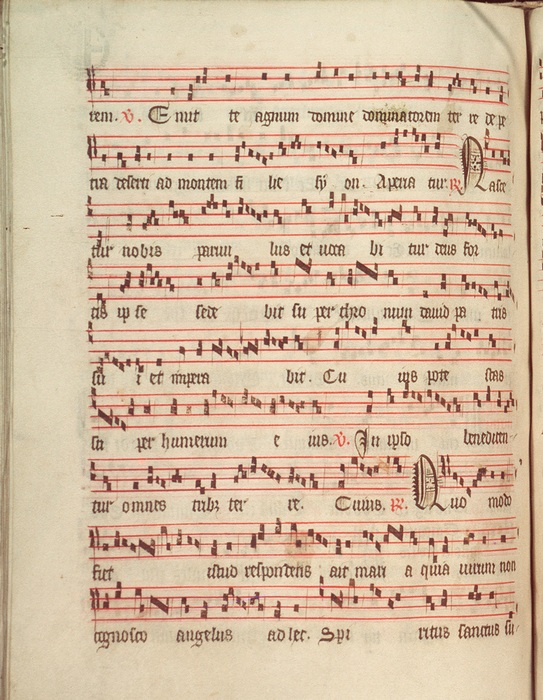 tem. V. Emit te agnum domine dominatorem ter re de pe
tra deserti ad montem fi lie sy on. Aperia tur. R. Nasce
tur nobis parvu lus et voca bi tur deus for
tis ip se sede bit su per thro num david pa tris
su i et impera bit. Cu ius pote stas
su per humerum e ius. V. In ipso benedicen
tur omnes trib3 ter re. Cuius. R. Quo modo
fiet istud respondens ait mari a quia virum non
cognosco angelus ad hec. Spi ritus sanctus su